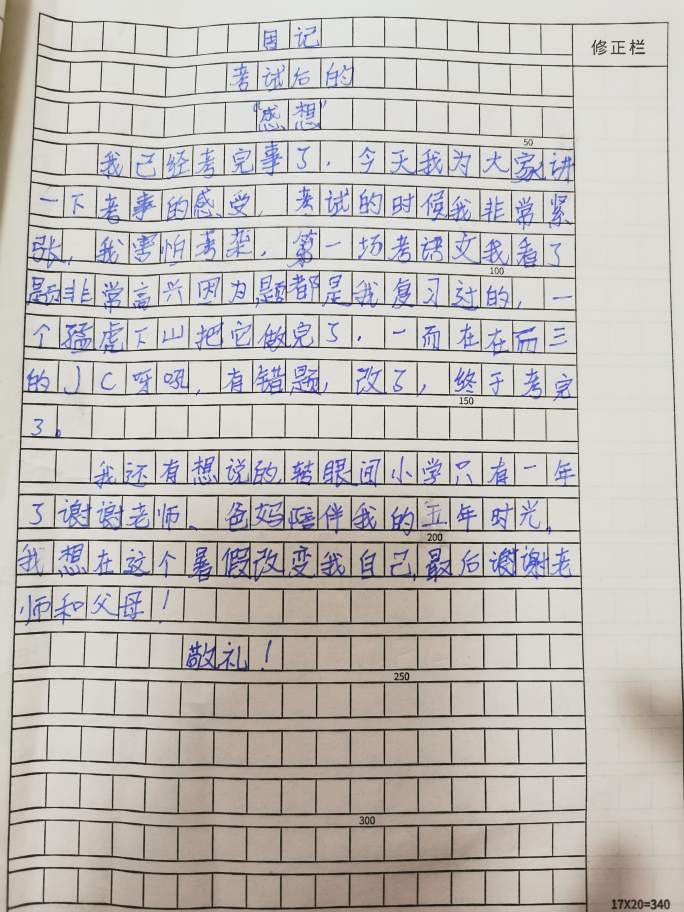 日记
修正栏
考试后的
“感想”
50
我已经考完事了.今天我为大家讲
一下考事的感受.考试的时候我非常紧
张,我害怕考柒.第一场考语文我看了
100
题非常高兴因为,题都是我复习过的,一
个猛虎下山把它做完了.一而在在而三
的JC呀吼,有错题,改了,终于考完
150
了。
我还有想说的,转眼间小学只有一年
了谢谢老师、爸妈陪伴我的五年时光,
200
我想在这个暑假改变我自己,最后谢谢老
师和父母!
敬礼!
250
300
17X20=340